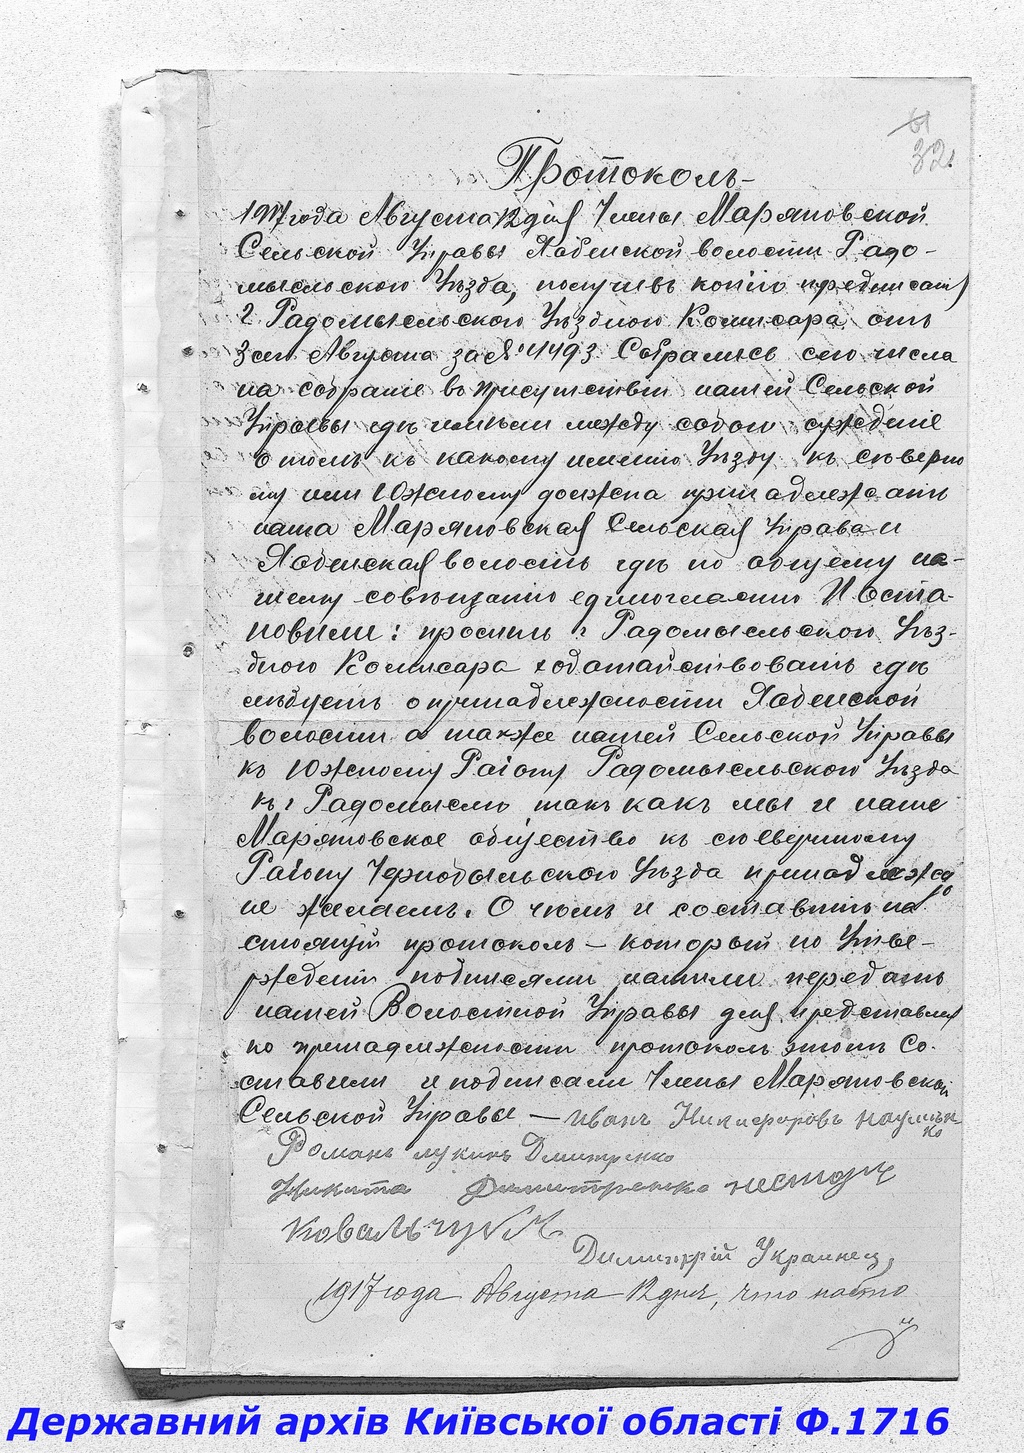 61
32.
Протоколъ
1917 года Августа 12 дня Члены Маряновской
Сельской Управы Хабенской волости Радо-
мысльского Уѣзда, получивъ копію предписанія
Г. Радомысельского Уѣздного Комисара отъ
3 сего Августа за № 4493. Собрались сего числа
на собраніе въ присутствіи нашей Сельской
Управы гдѣ имѣли между собою сужденіе
о томъ къ какому именно Уѣзду къ северно
му или Южному должна принадлежать
наша Маряновская Сельская Управа и
Хабенская волость гдѣ по общему на-
шему совѣщанію единогласно Поста-
новили: просить г. Радомысельского Уѣз-
дного Комисара ходатайствовать гдѣ
слѣдуетъ о принадлежности Хабенской
волости а также нашей Сельской Управы
къ Южному Раіону Радомысельского Уѣзда
къ г Радомыслю такъ какъ мы и наше
Маряновское общество къ сѣверному
Раіону Чернобыльского Уѣзда принадлежа
не желаемъ. О чемъ и составить на
стоящій протоколъ – который по Утве-
ржденіи подписями нашими передать
нашей Волостной Управы для представленія
по принадлежности протоколъ этотъ Со-
ставили и подписали Члены Маряновской
Сельской Управы – Иванъ Никифоровъ Науменко
Романъ Лукинъ Дмитренко
Никита Димитренко Несторъ
Ковальчукъ
Димитрій Украинец,
1917 года Августа 12 дня, что насто
Державний архів Київської області Ф.1716